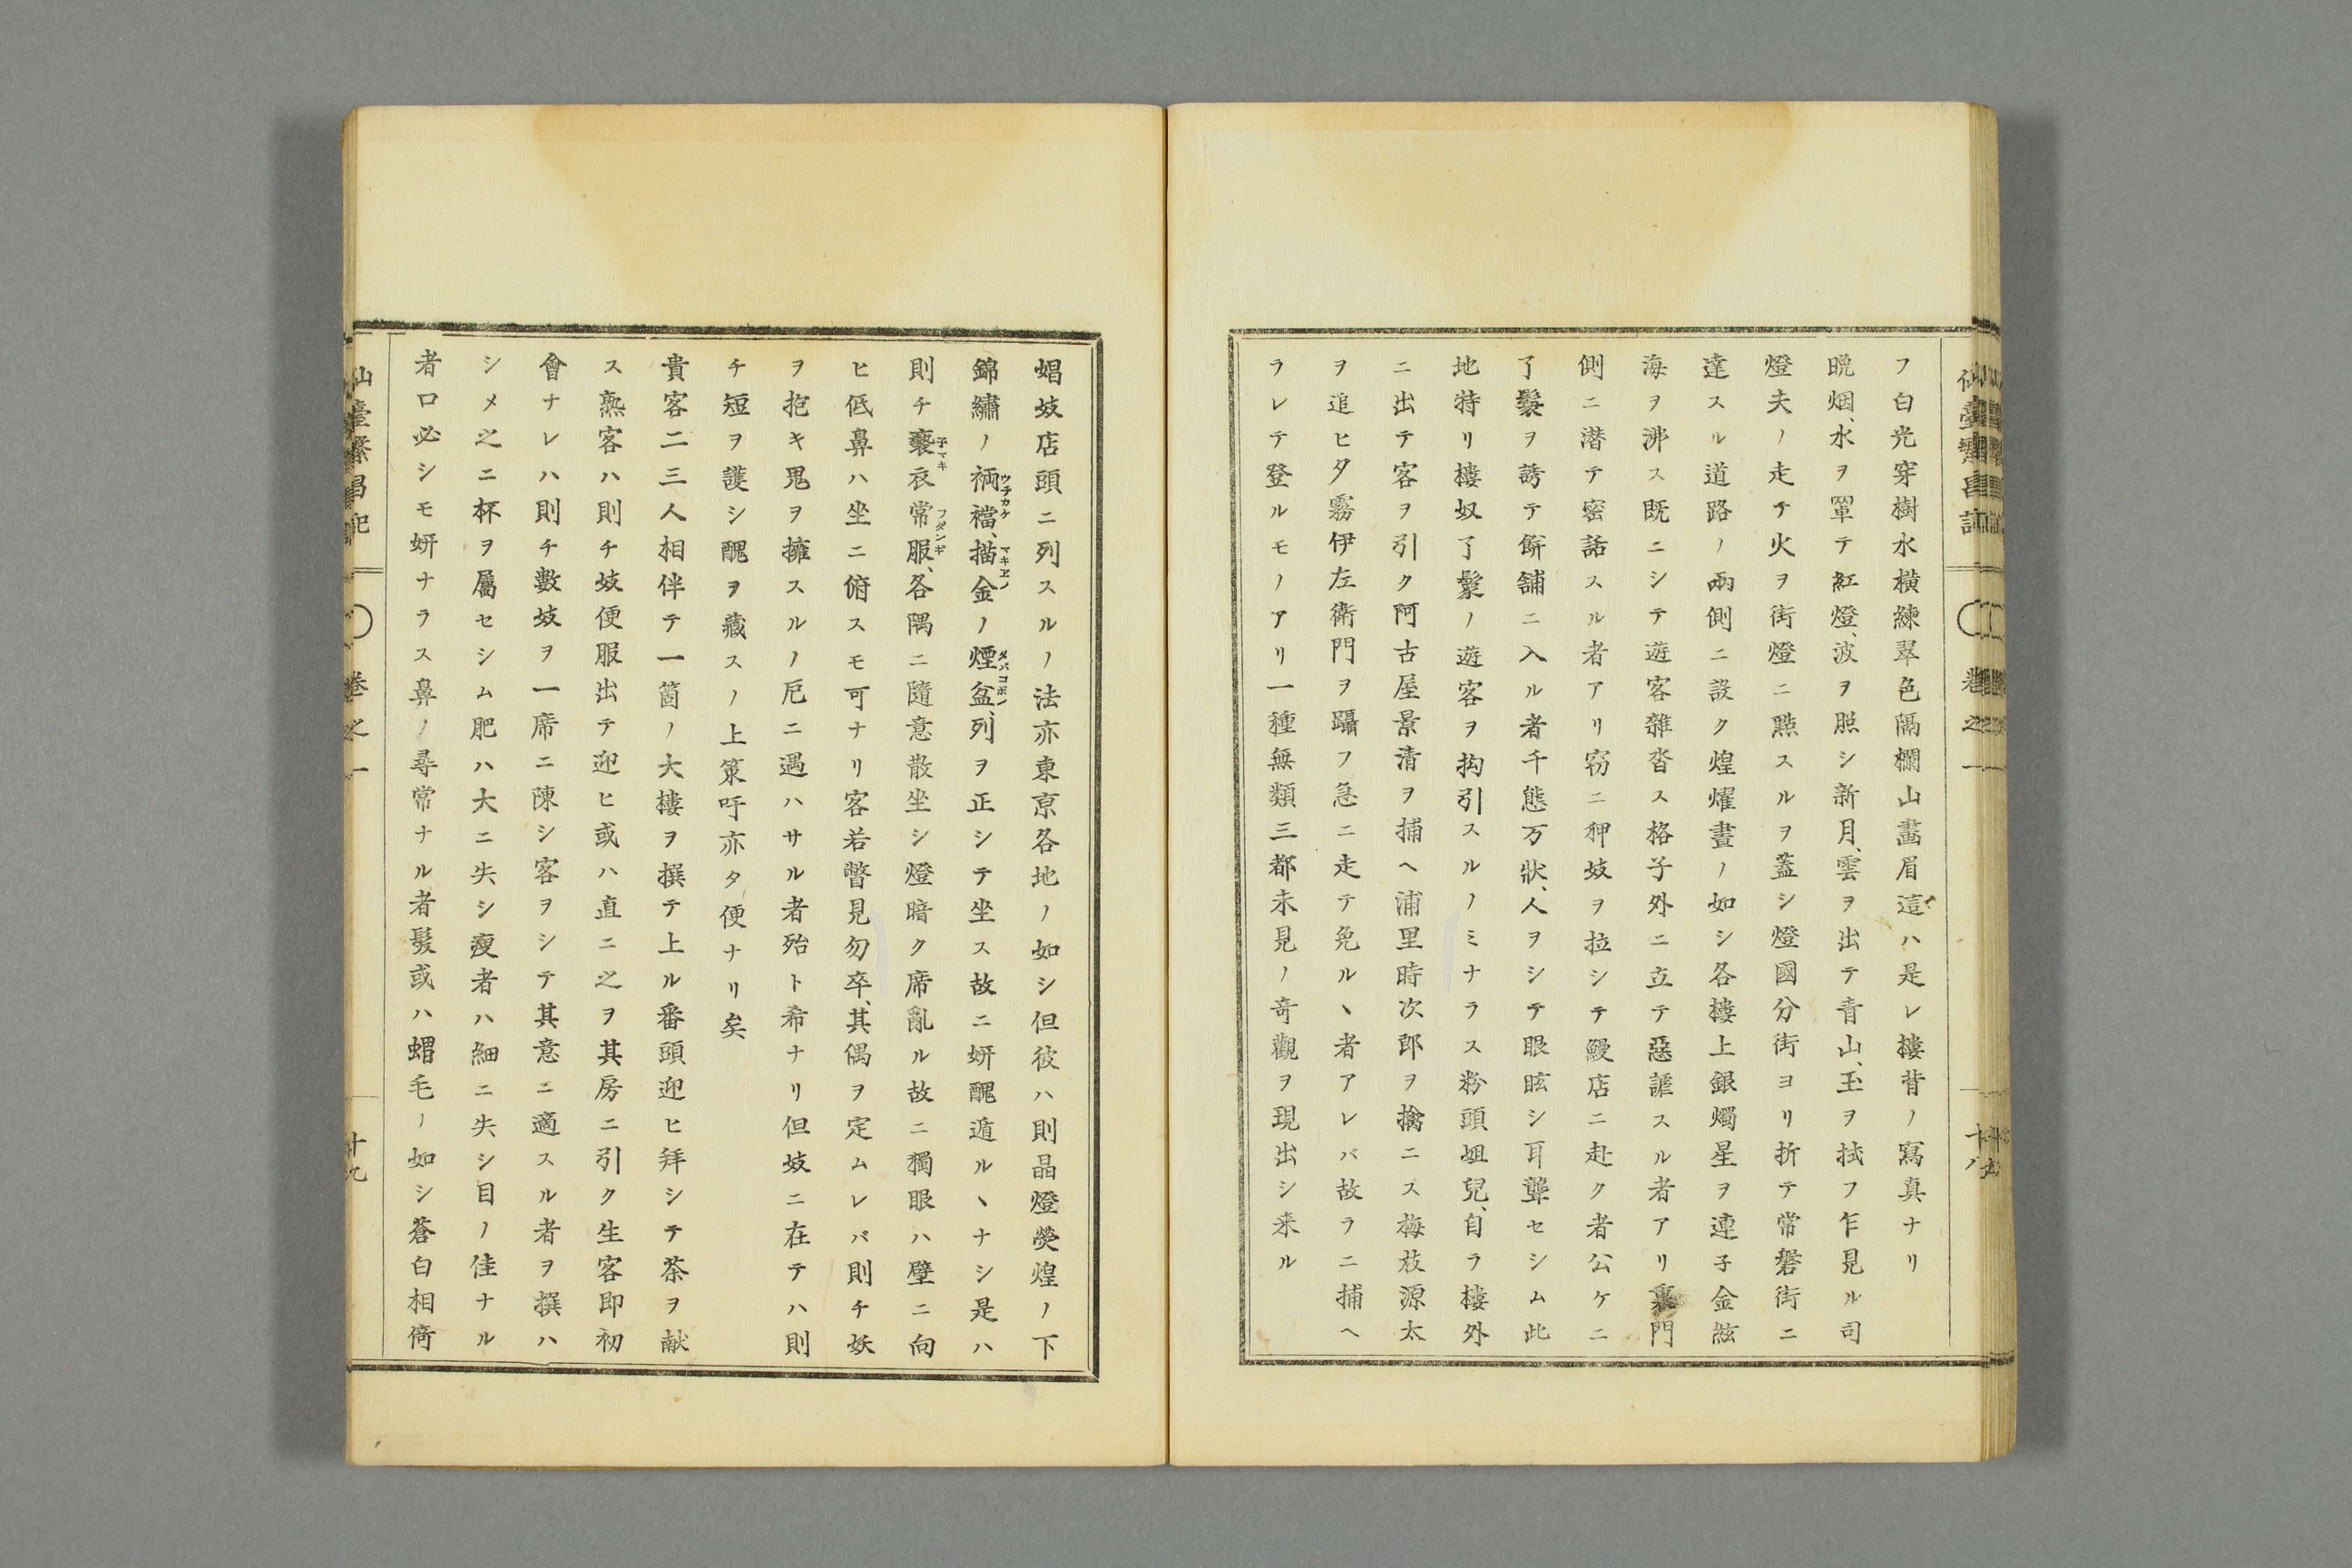 仙臺繁昌記 卷之一 十八
フ白光穿樹水橫練翠色隔欄山畵眉這ハ是レ樓背ノ寫真ナリ
晩烟、水ヲ罩テ紅燈、波ヲ照シ新月、雲ヲ出テ青山、玉ヲ拭フ乍見ル司
燈夫ノ走テ火ヲ街燈ニ㸃スルヲ蓋シ燈國分街ヨリ折テ常磐街ニ
達スル道路ノ兩側ニ設ク煌燿晝ノ如シ各樓上銀燭星ヲ連子金絃
海ヲ沸ス既ニシテ遊客雜沓ス格子外ニ立テ惡謔スル者アリ裏門
側ニ潜テ密話スル者アリ窃ニ狎妓ヲ拉シテ鰻店ニ赴ク者公ケニ
了鬟ヲ誘テ餅舖ニ入ル者千態万狀、人ヲシテ眼眩シ耳聾セシム此
地特リ樓奴了鬟ノ遊客ヲ拘引スルノミナラス粉頭姐兒、自ラ樓外
ニ出テ客ヲ引ク阿古屋景清ヲ捕ヘ浦里時次郎ヲ擒ニス梅枝源太
ヲ追ヒ夕霧伊左衛門ヲ躡フ急ニ走テ免ルヽ者アレバ故ラニ捕ヘ
ラレテ登ルモノアリ一種無類三都未見ノ奇觀ヲ現出シ来ル
娼妓店頭ニ列スルノ法亦東京各地ノ如シ但彼ハ則晶燈熒煌ノ下
錦繡ノ裲襠、描金ノ煙盆、列ヲ正シテ坐ス故ニ妍醜遁ルヽナシ是ハ
ウチカケ マキヱノ タバコボン
則チ褻衣常服、各隅ニ隨意散坐シ燈暗ク席亂ル故ニ獨眼ハ壁ニ向
子マキ フダンギ
ヒ低鼻ハ坐ニ俯スモ可ナリ客若瞥見勿卒、其偶ヲ定ムレバ則チ妖
ヲ抱キ鬼ヲ擁スルノ厄ニ遇ハサル者殆ト希ナリ但妓ニ在テハ則
チ短ヲ護シ醜ヲ藏スノ上策吁亦タ便ナリ矣
貴客二三人相伴テ一箇ノ大樓ヲ撰テ上ル番頭迎ヒ拜シテ茶ヲ献
ス熟客ハ則チ妓便服出テ迎ヒ或ハ直ニ之ヲ其房ニ引ク生客即初
會ナレハ則チ數妓ヲ一席ニ陳シ客ヲシテ其意ニ適スル者ヲ撰ハ
シメ之ニ杯ヲ屬セシム肥ハ大ニ失シ瘦者ハ細ニ失シ目ノ佳ナル
者口必シモ妍ナラス鼻ノ尋常ナル者髮或ハ蝟毛ノ如シ蒼白相倚
仙臺繁昌記 卷之一 十九